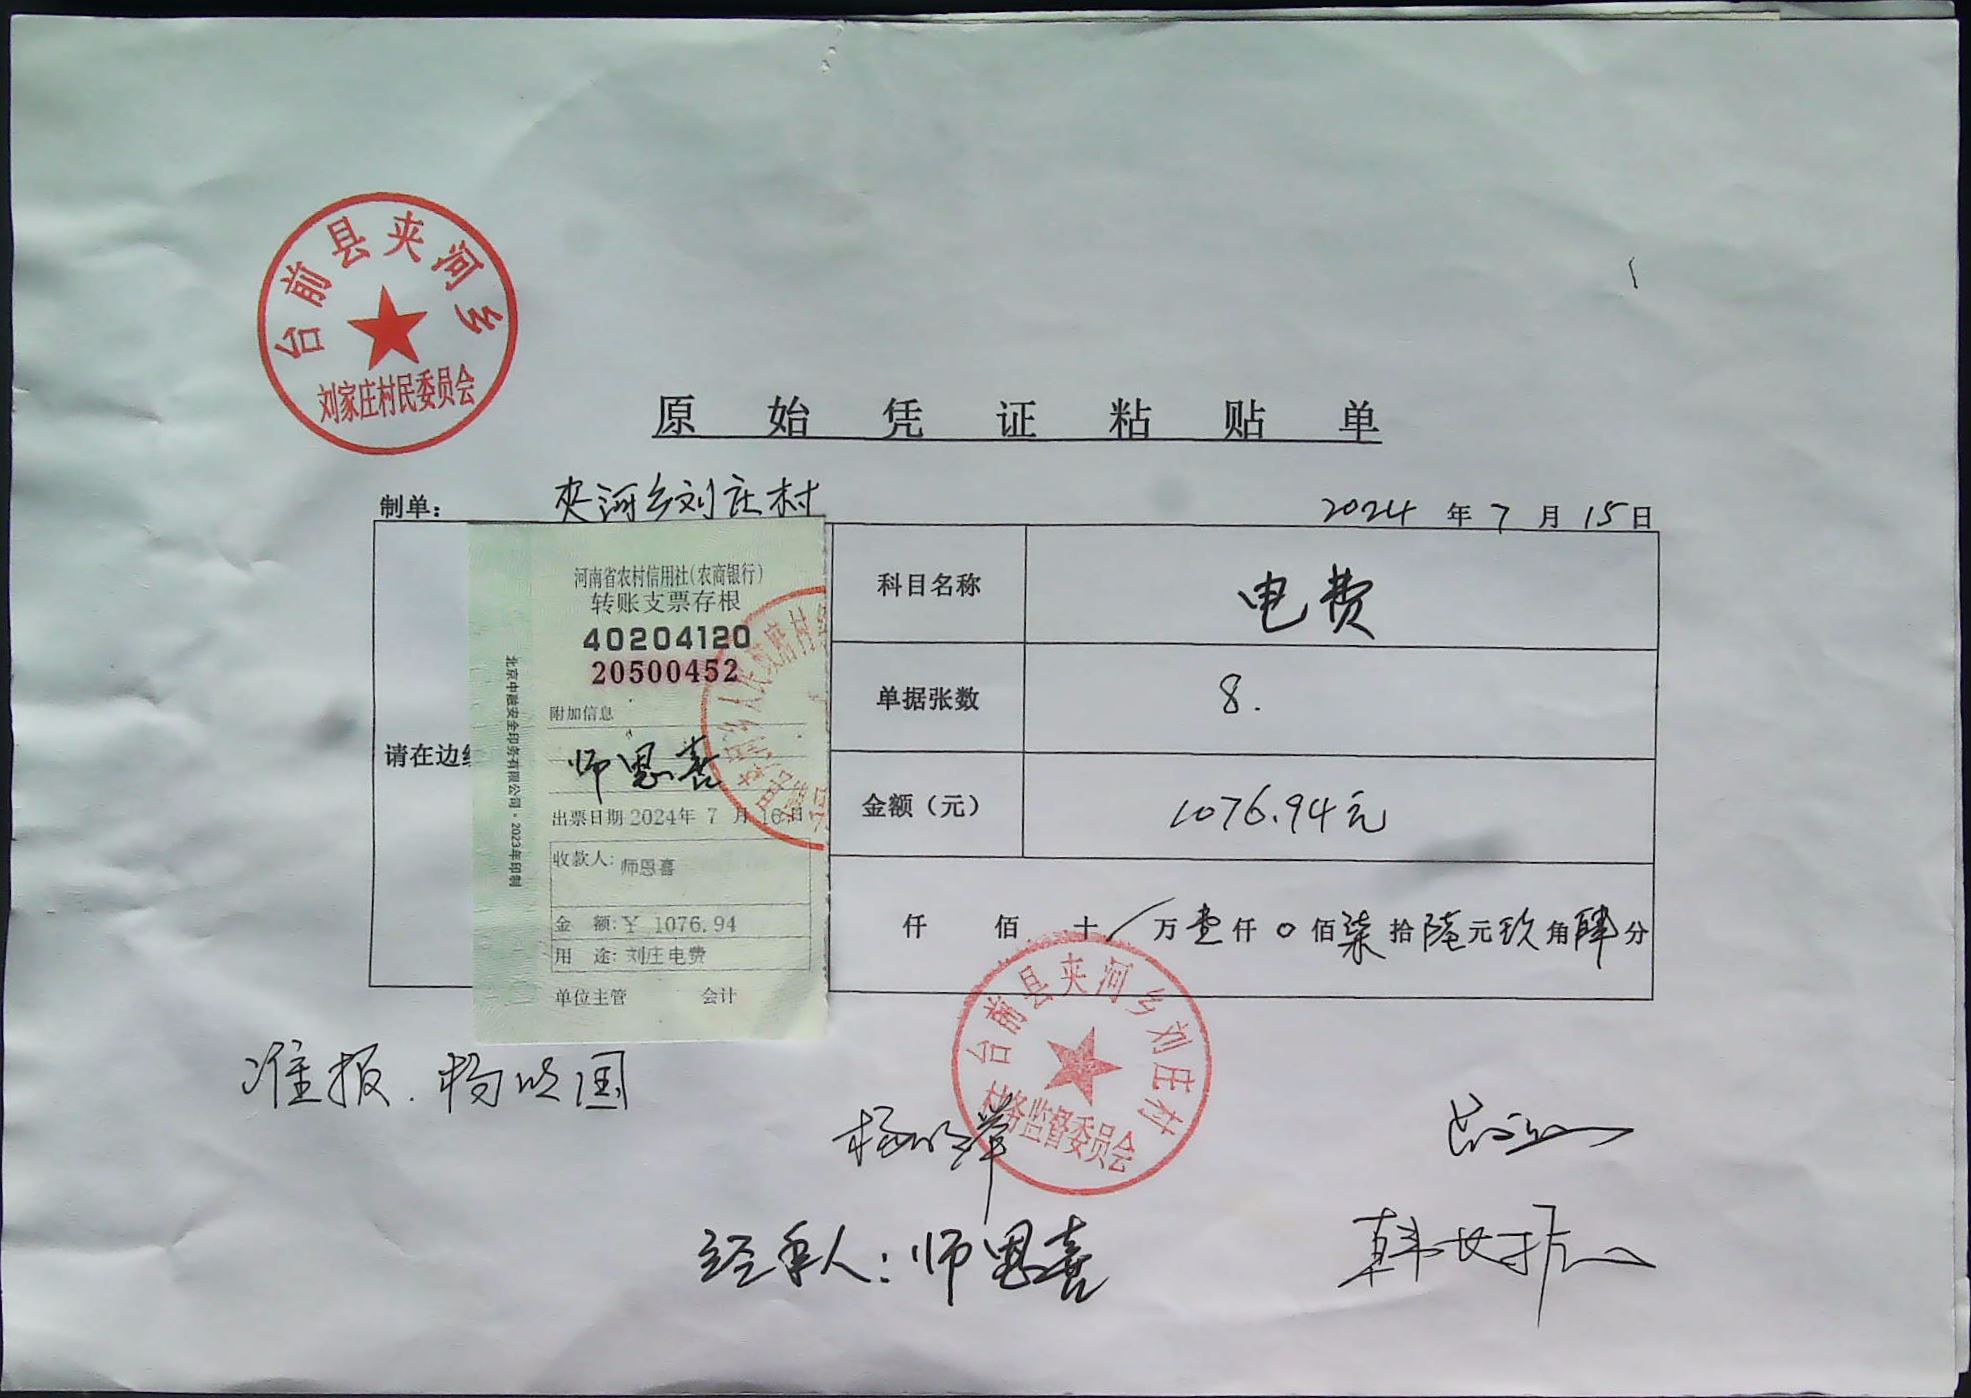 台前县夹河乡
刘家庄村民委员会
原始凭证粘贴单
制单: 夹河乡刘庄村 2024年7月15日
请在边
河南省农村信用社(农商银行)
转账支票存根
40204120
20500452
附加信息
师恩喜
出票日期2024年7月16日
收款人: 师恩喜
金额:¥ 1076.94
用途: 刘庄电费
单位主管 会计
北京中融安全印务有限公司·2023年印制
科目名称 电费
单据张数 8.
金额(元) 1076.94元
仟佰十/万壹仟0佰柒拾陆元玖角肆分
台前县夹河乡刘庄村
村务监督委员会
准报.
经手人:师恩喜